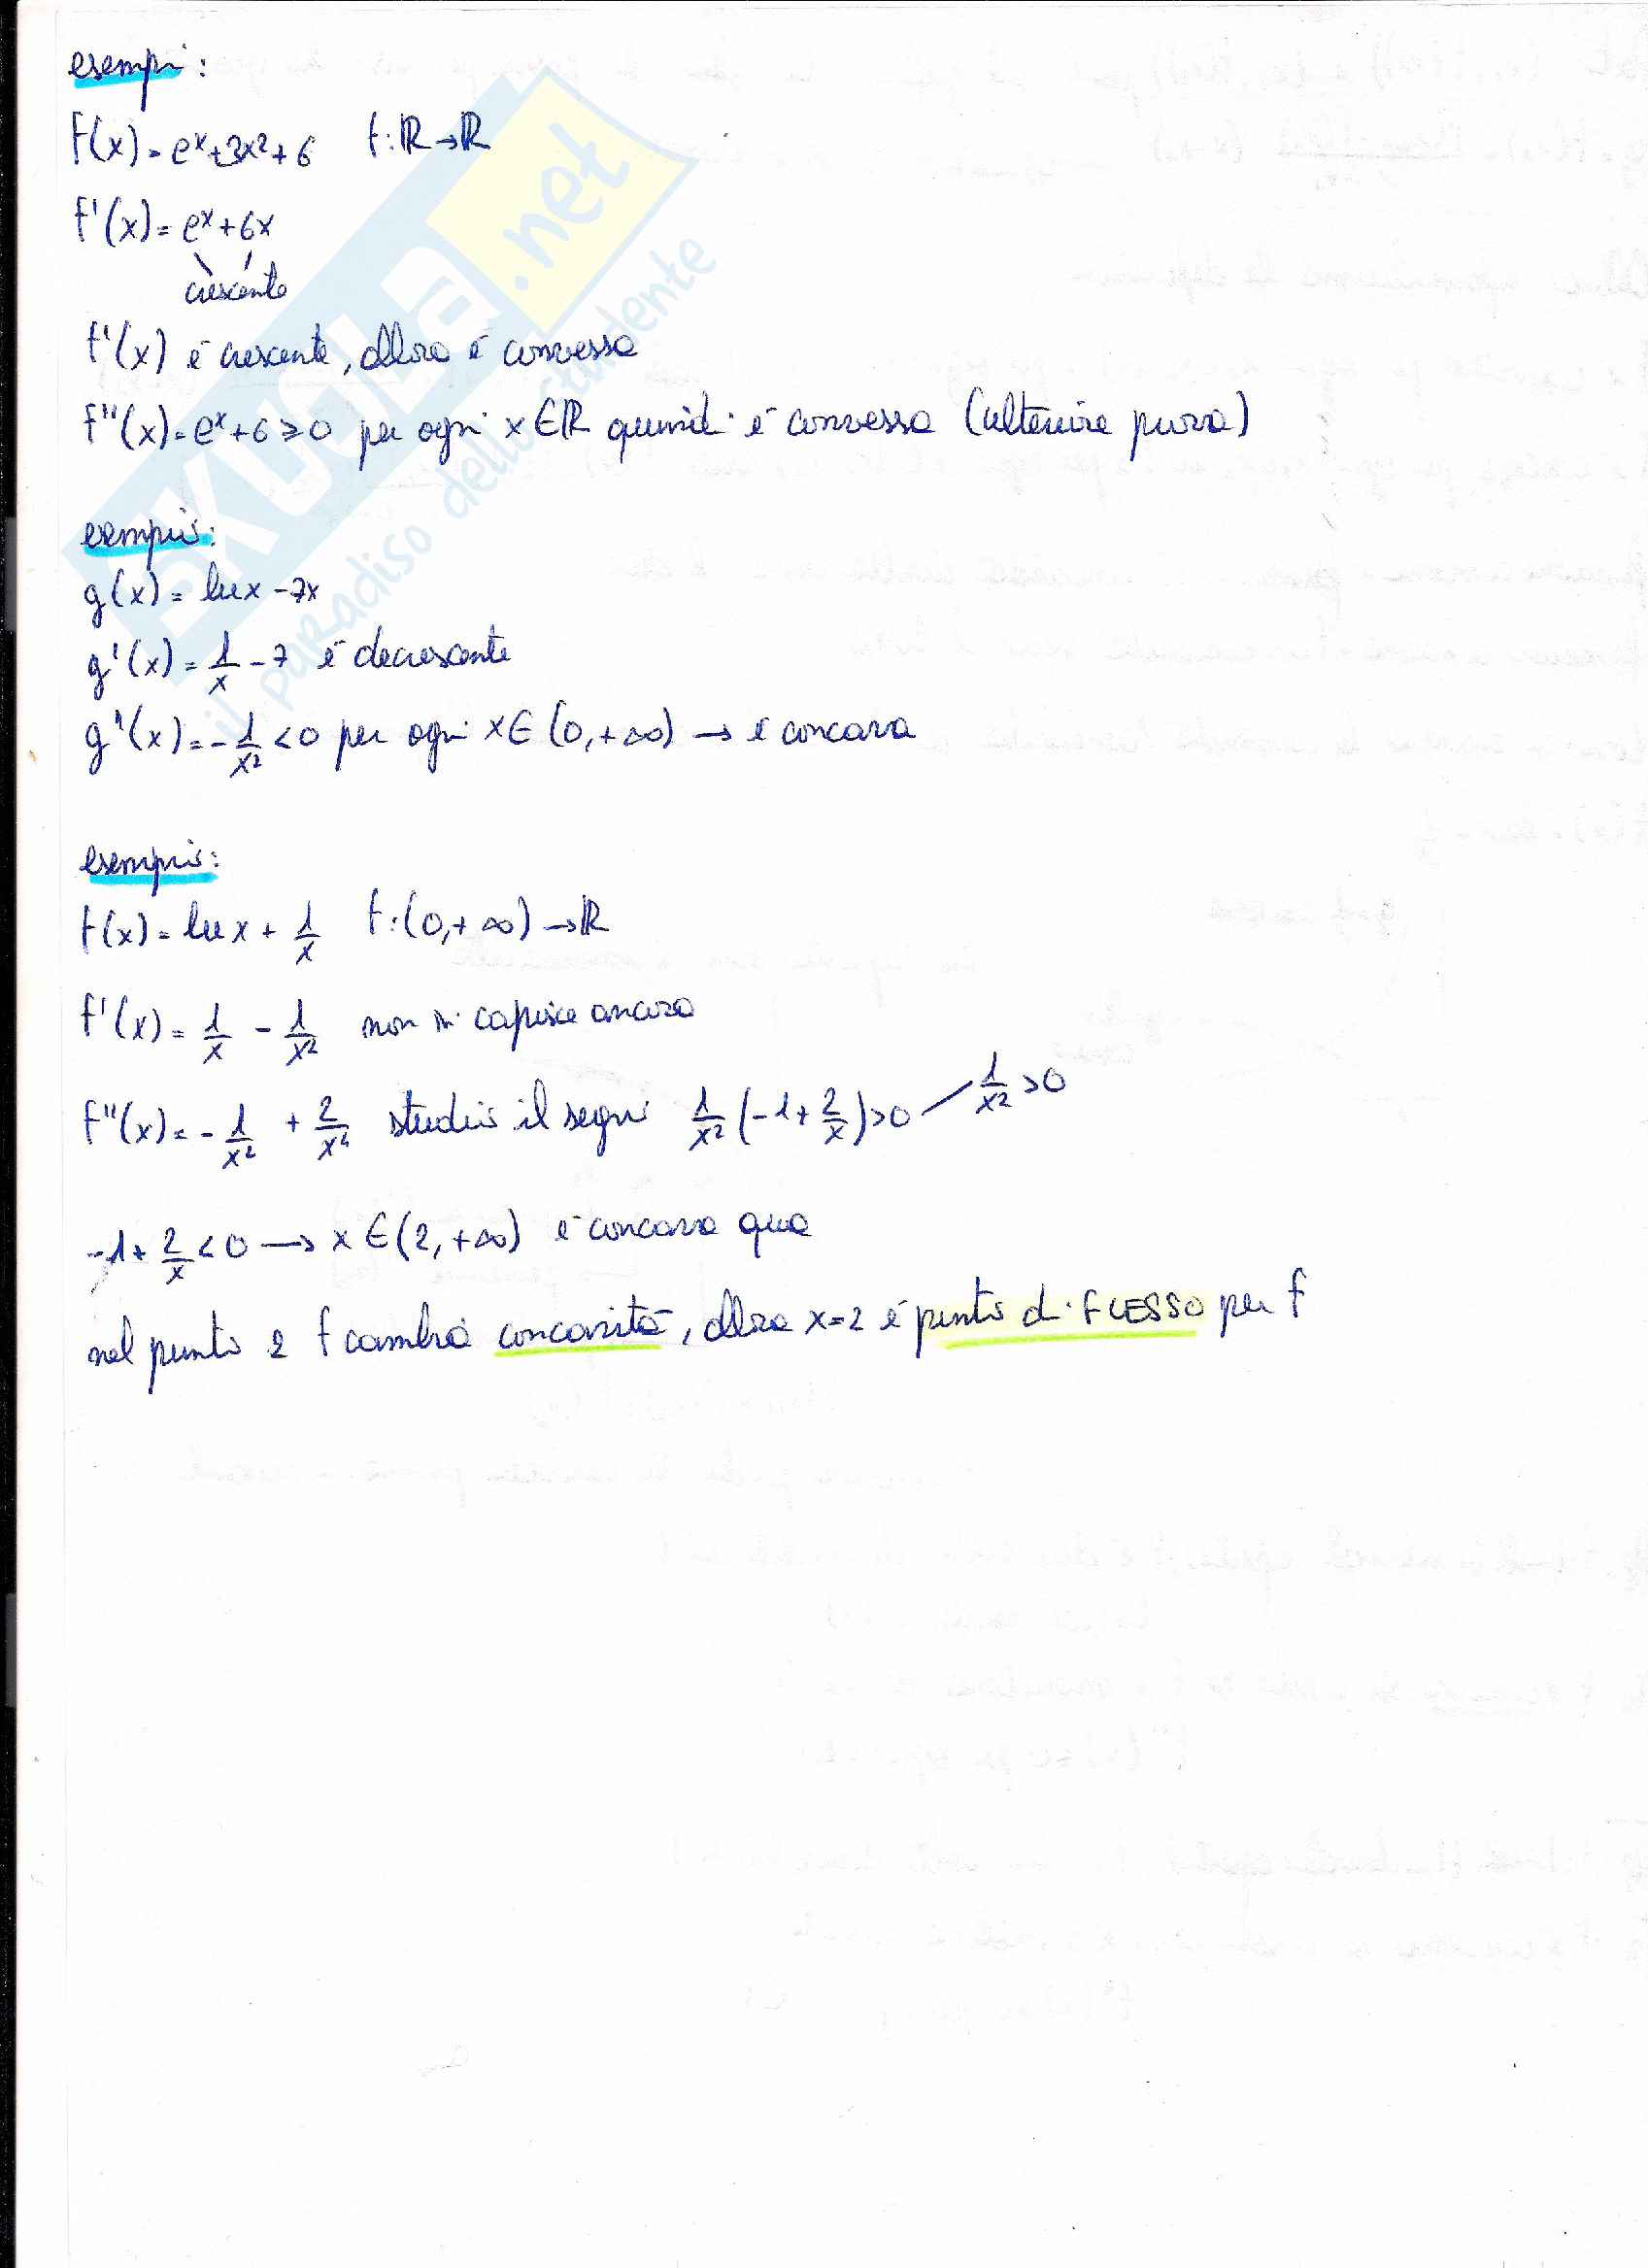 esempi:
f(x)=eˣ+3x²+6 f:ℝ→ℝ
f'(x)=eˣ+6x
crescente
f'(x) è crescente, allora è convessa
f''(x)=eˣ+6≥0 per ogni x∈ℝ quindi è convessa (ulteriore prova)
esempio:
g(x)= lnx-7x
g'(x)= 1/x -7 è decrescente
g''(x)=-1/x² <0 per ogni x∈(0,+∞) → è concava
esempio:
f(x)= lnx + 1/x f:(0,+∞)→ℝ
f'(x)= 1/x - 1/x² non si capisce ancora
f''(x)=-1/x² + 2/x⁴ studio il segno 1/x²(-1+2/x)>0 1/x²>0
-1+2/x<0 → x∈(2,+∞) è concava qua
nel punto 2 f cambia concavità, allora x=2 è punto di FLESSO per f
SKUOLA.net
il paradiso dello studente